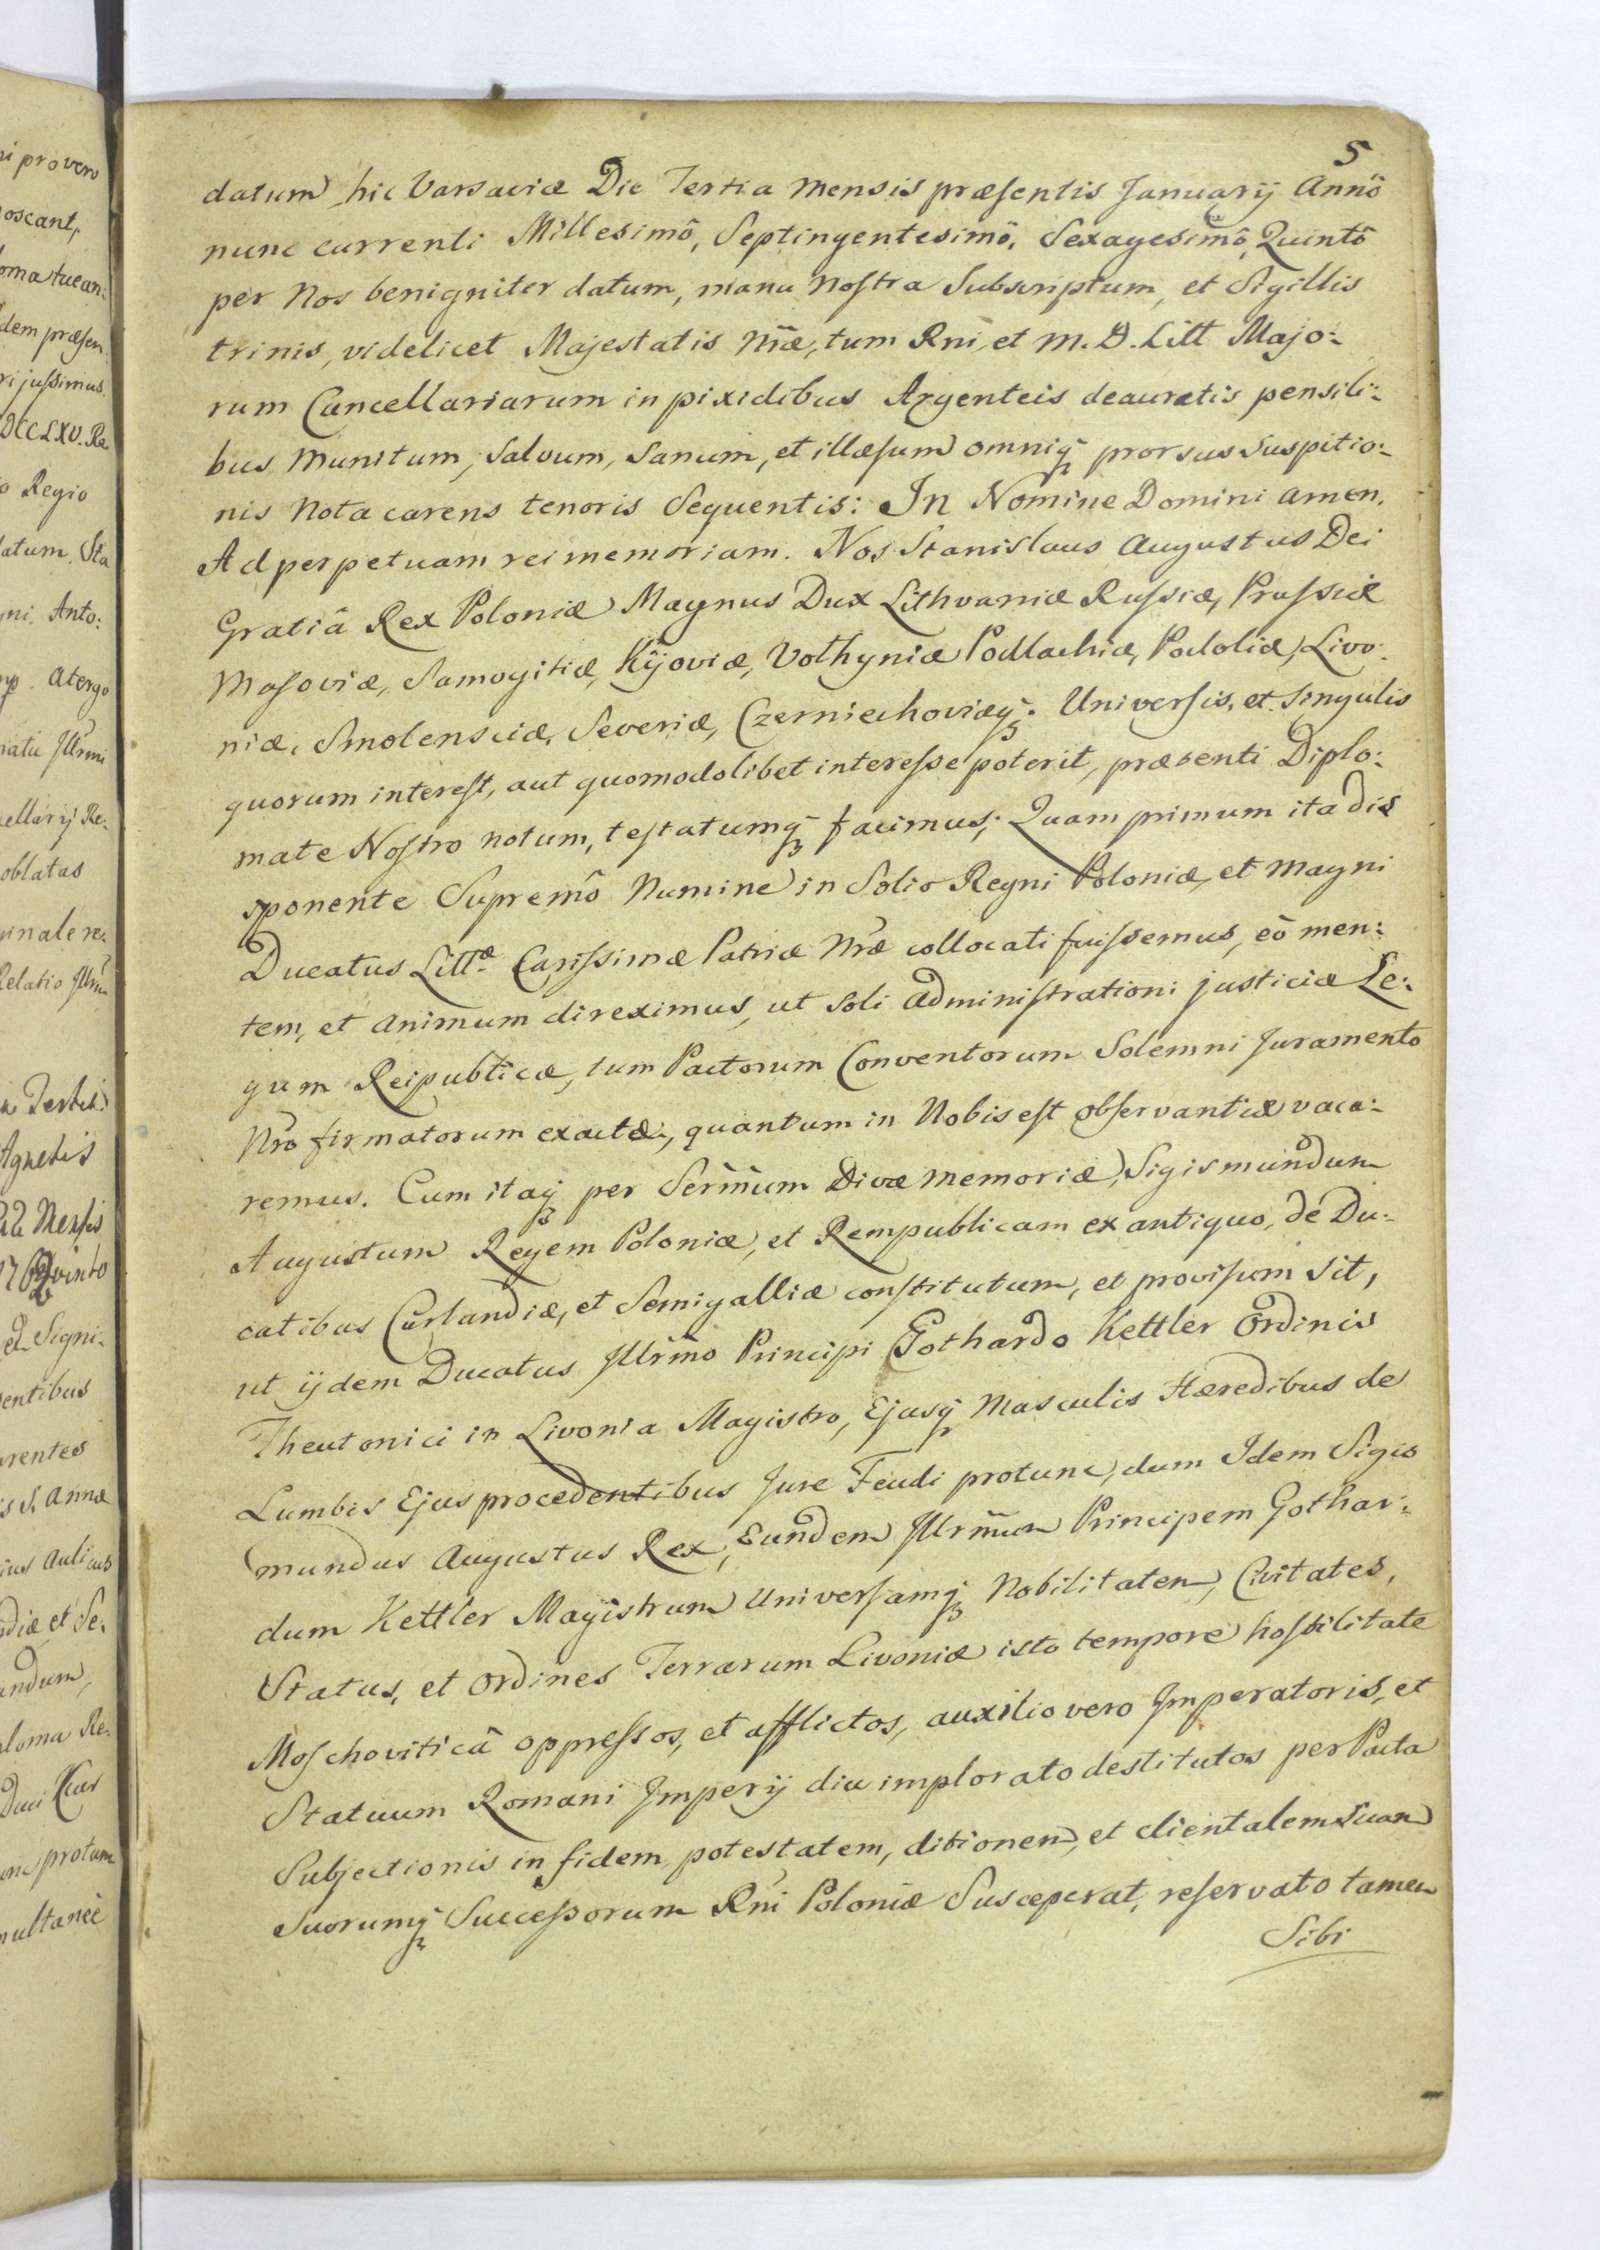 5
datum hic Varsaviæ Die Tertia mensis præsentis January Annô
nunc currenti Millesimô, Septingentesimô, Sexagesimô, Quintô
per Nos benigniter datum, manu Nostra Subscriptum, et Sigillis
trinis, videlicet Majestatis Nræ, tum Rni et M. D. Litt Majo:
rum Cancellariarum in pixidibus Argenteis deauratis pensili:
bus munitum, Salvum, Sanum, et illæsum omniq prorsus Suspitio:
nis Nota carens tenoris Sequentis: In Nomine Domini amen.
Ad perpetuam rei memoriam. Nos Stanislaus Augustus Dei
Gratiâ Rex Poloniæ Magnus Dux Lithvaniæ Russiæ, Prussiæ
Masoviæ, Samogitiæ, Kijoviæ, Volhyniæ Podlachiæ, Podoliæ, Livo:
niæ, Smolensciæ, Severiæ, Czerniechoviæq. Universis, et Singulis
quorum interest, aut quomodolibet interesse poterit, præsenti Diplo:
mate Nostro notum, testatumq facimus; Quam primum ita dis
sponente Supremô Numine in Solio Regni Poloniæ, et Magni
Ducatus Littæ Carissimæ Patriæ Nræ collocati fuissemus, eò men:
tem, et animum direximus, ut Soli administrationi justiciæ Le:
gum Reipublicæ, tum Pactorum Conventorum Solemni Juramento
Nro firmatorum exactæ, quantum in Nobis est observantiæ vaca:
remus. Cum itaq per Sermum Divæ memoriæ, Sigismundum
Augustum Regem Poloniæ, et Rempublicam ex antiquo, de Du:
catibus Curlandiæ, et Semigalliæ constitutum, et provisum Sit,
ut ijdem Ducatus Illrmo Principi Gothardo Kettler Ordinis
Theutonici in Livonia Magistro, Ejusq Masculis Hæredibus de
Lumbis Ejus procedentibus Jure Feudi protunc, dum Idem Sigis
mundus Augustus Rex, Eundem Illrmum Principem Gothar:
dum Kettler Magistrum Universamq Nobilitatem, Civitates,
Status, et Ordines Terrarum Livoniæ isto tempore hostilitate
Moschoviticâ oppressos, et afflictos, auxilio vero Imperatoris, et
Statuum Romani Imperij diu implorato destitutos per Pacta
Subjectionis in fidem, potestatem, ditionem, et clientalem Suam
Suorumq Successorum Rni Poloniæ Susceperat, reservato tamen
Sibi